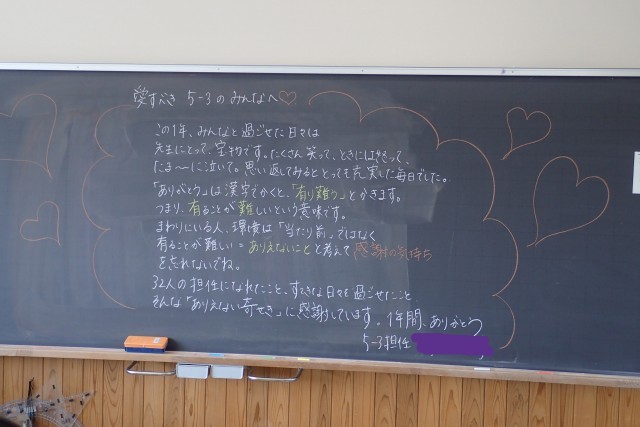 愛すべき 5-3のみんなへ♡
この1年、みんなと過ごせた日々は
先生にとって、宝物です。たくさん笑って、ときにはおこって、
たま〜に泣いて。思い返してみるととっても充実した毎日でした。
「ありがとう」は漢字でかくと、「有り難う」とかきます。
つまり、有ることが難しいという意味です。
まわりにいる人、環境は「当たり前」ではなく
有ることが難しい=ありえないことと考えて感謝の気持ち
を忘れないでね。
32人の担任になれたこと、すてきな日々を過ごせたこと
そんな「ありえない奇せき」に感謝しています。1年間、ありがとう
5-3担任